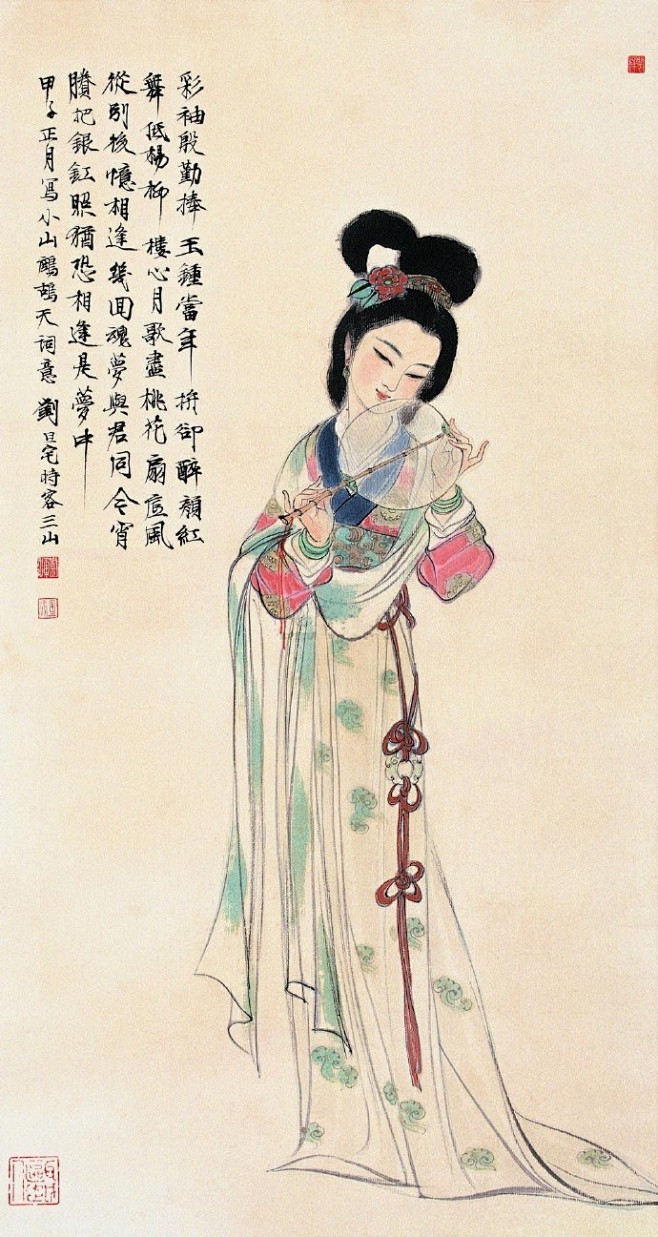 彩袖殷勤捧玉鍾當年拚卻醉顏紅
舞低楊柳樓心月歌盡桃花扇底風
從別後憶相逢幾回魂夢與君同今宵
賸把銀釭照猶恐相逢是夢中
甲子正月寫小山鷓鴣天詞意 劉旦宅時客三山